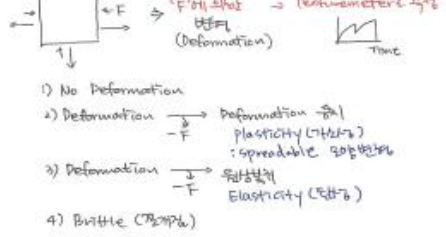 ←F ⇒ 'F'에 의한 → Texturometer로 측정
변형
(Deformation)
Time
1) No Deformation
2) Deformation → Deformation 유지
-F Plasticity (가소성)
: spreadable 모양변형
3) Deformation → 원상복귀
-F Elasticity (탄성)
4) Brittle (쪼개짐)